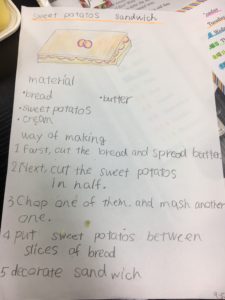 Sweet potatos sandwich
material
•bread •butter
•sweet potatos
•cream
way of making
1 Farst, cut the bread and spread butter.
2 Next, cut the sweet potatos
in half.
3 Chop one of them, and mash another
one.
4 put sweet potatos between
slices of bread
5 decorate sandwich